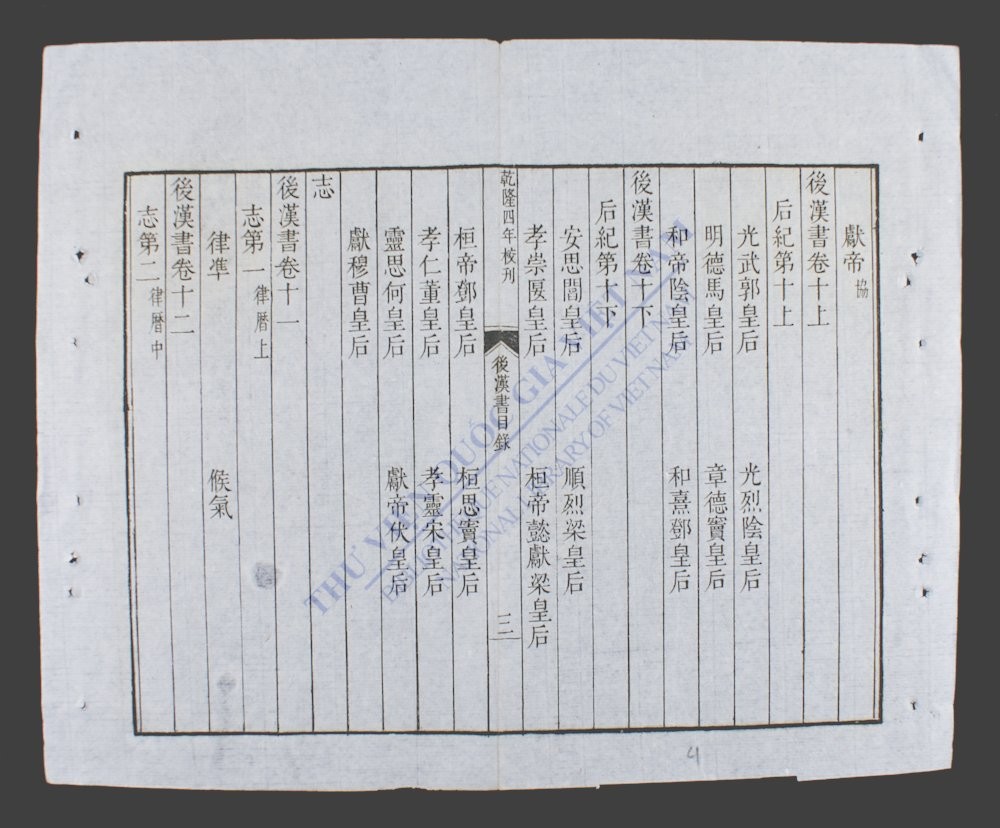 獻帝協
後漢書卷十上
后紀第十上
光武郭皇后 光烈陰皇后
明德馬皇后 章德竇皇后
和帝陰皇后 和熹鄧皇后
後漢書卷十下
后紀第十下
安思閻皇后 順烈梁皇后
孝崇匽皇后 桓帝懿獻梁皇后
乾隆四年校刊
後漢書目錄
三
桓帝鄧皇后 桓思竇皇后
孝仁董皇后 孝靈宋皇后
靈思何皇后 獻帝伏皇后
獻穆曹皇后
志
後漢書卷十一
志第一律曆上
律準 候氣
後漢書卷十二
志第二律曆中
THƯ VIỆN QUỐC GIA VIỆT NAM
BIBLIOTHÈQUE NATIONALE DU VIET NAM
NATIONAL LIBRARY OF VIET NAM
4